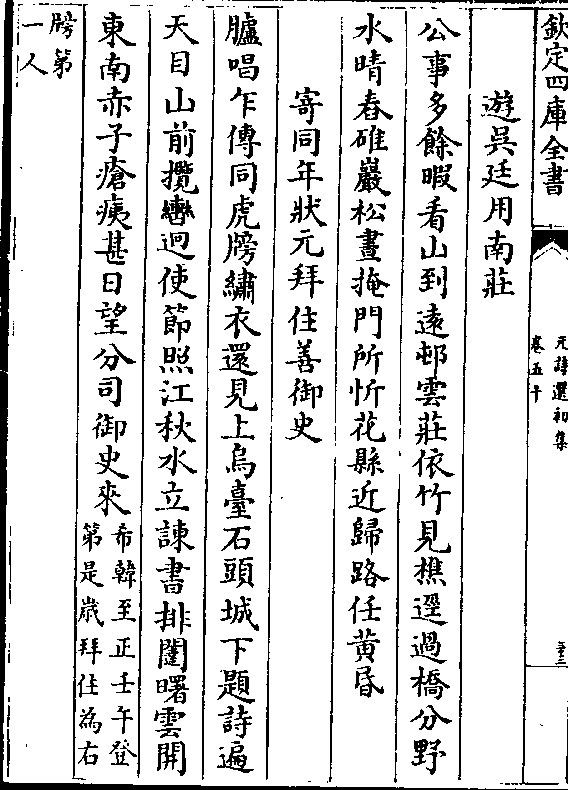 欽定四庫全書
元詩選初集
卷五十
二十三
遊吳廷用南莊
公事多餘暇看山到遠邨雲莊依竹見樵逕過橋分野
水晴舂碓巖松晝掩門所忻花縣近歸路任黃昏
寄同年狀元拜住善御史
臚唱乍傳同虎牓繡衣還見上烏臺石頭城下題詩遍
天目山前攬轡迴使節照江秋水立諫書排闥曙雲開
東南赤子瘡痍甚日望分司御史來
希韓至正壬午登
第是歲拜住為右
牓第
一人